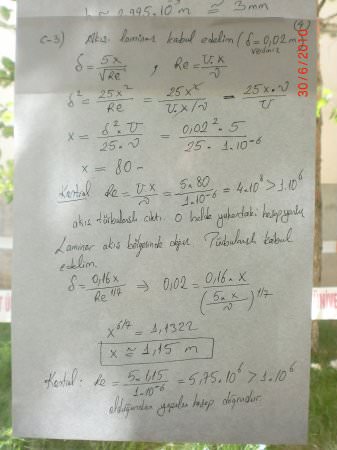 h ≅ 2,995.10⁻³ m ≅ 3 mm
(4)
C-3) Akış laminer kabul edelim (δ = 0,02 m verilmiş
δ = 5x / √Re , Re = U x / ν
δ² = 25x² / Re = 25x² / (U.x/ν) = 25x.ν / U
x = δ².U / 25.ν = 0,02².5 / 25.1.10⁻⁶
x = 80 m
Kontrol Re = U x / ν = 5.80 / 1.10⁻⁶ = 4.10⁸ > 1.10⁶
akış türbülanslı çıktı. O halde yukarıdaki hesap yanlış
Laminer akış bölgesinde değil. Türbülanslı kabul
edelim.
δ = 0,16x / Re^1/7 ⇒ 0,02 = 0,16.x / (5.x/ν)^1/7
x^6/7 = 1,1322
x ≅ 1,15 m
Kontrol: Re = 5.1,15 / 1.10⁻⁶ = 5,75.10⁶ > 1.10⁶
olduğundan yapılan hesap doğrudur.
30/6/2010